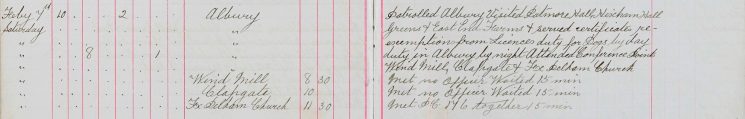 Feby 7th 10 . . 2 . . Albury Patrolled Albury Visited Patmore Hall, Hixham Hall
Saturday . . . . . . . . " Greens & East End Farms & served certificate re-
" . . . . . . . . " exemption from Licences duty for Dogs by day
" . 8 . . . 1 . . " duty in Albury by night Attended Conference Point
" . . . . . . . . " Wind Mill, Clapgate & Fx Pelham Church
" . . . . . . . . Wind Mill 8 30 Met no Officer Waited 15 min
" . . . . . . . . Clapgate 10 . Met no Officer Waited 15 min
" . . . . . . . . Fx Pelham Church 11 30 Met PC 176 together 15 min